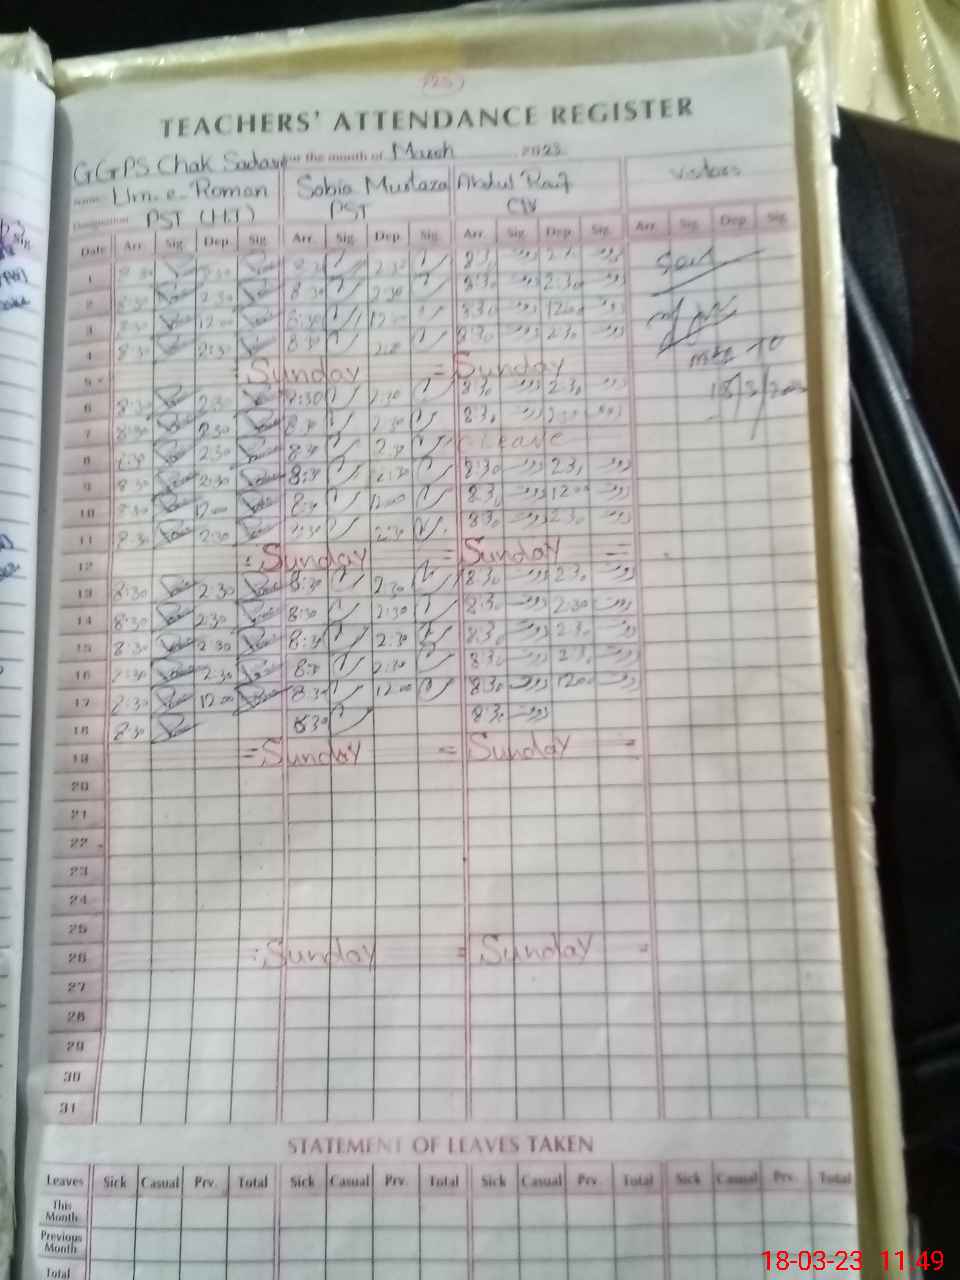 (25)
TEACHERS' ATTENDANCE REGISTER
GGPS Chak Sadau for the month of March 2023
Name: Um-e-Roman Sobia Murtaza Abdul Rauf Visitors
Designation PST (H.T) PST CIV
Date Arr. Sig. Dep. Sig. Arr. Sig. Dep. Sig. Arr. Sig. Dep. Sig. Arr. Sig. Dep. Sig.
1 8:30 2:30 8:30 2:30 8:30 2:30
2 8:30 2:30 8:30 2:30 8:30 2:30
3 8:30 12:00 8:30 12:00 8:30 12:00
4 8:30 2:30 8:30 2:30 8:30 2:30
5 = Sunday = Sunday
6 8:30 2:30 8:30 2:30 8:30 2:30
7 8:30 2:30 8:30 2:30 8:30 2:30
8 8:30 2:30 8:30 2:30 C Leave
9 8:30 2:30 8:30 2:30 8:30 2:30
10 8:30 12:00 8:30 12:00 8:30 12:00
11 8:30 2:30 8:30 2:30 8:30 2:30
12 = Sunday = Sunday =
13 8:30 2:30 8:30 2:30 8:30 2:30
14 8:30 2:30 8:30 2:30 8:30 2:30
15 8:30 2:30 8:30 2:30 8:30 2:30
16 8:30 2:30 8:30 2:30 8:30 2:30
17 8:30 12:00 8:30 12:00 8:30 12:00
18 8:30 8:30 8:30
19 = Sunday = Sunday =
20
21
22
23
24
25
26 = Sunday = Sunday =
27
28
29
30
31
STATEMENT OF LEAVES TAKEN
Leaves Sick Casual Prv. Total Sick Casual Prv. Total Sick Casual Prv. Total Sick Casual Prv. Total
This Month
Previous Month
Total
18-03-23 11:49